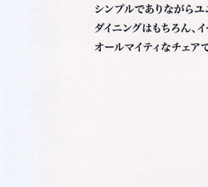 シンプルでありながらユニ
ダイニングはもちろん、イ
オールマイティなチェアで